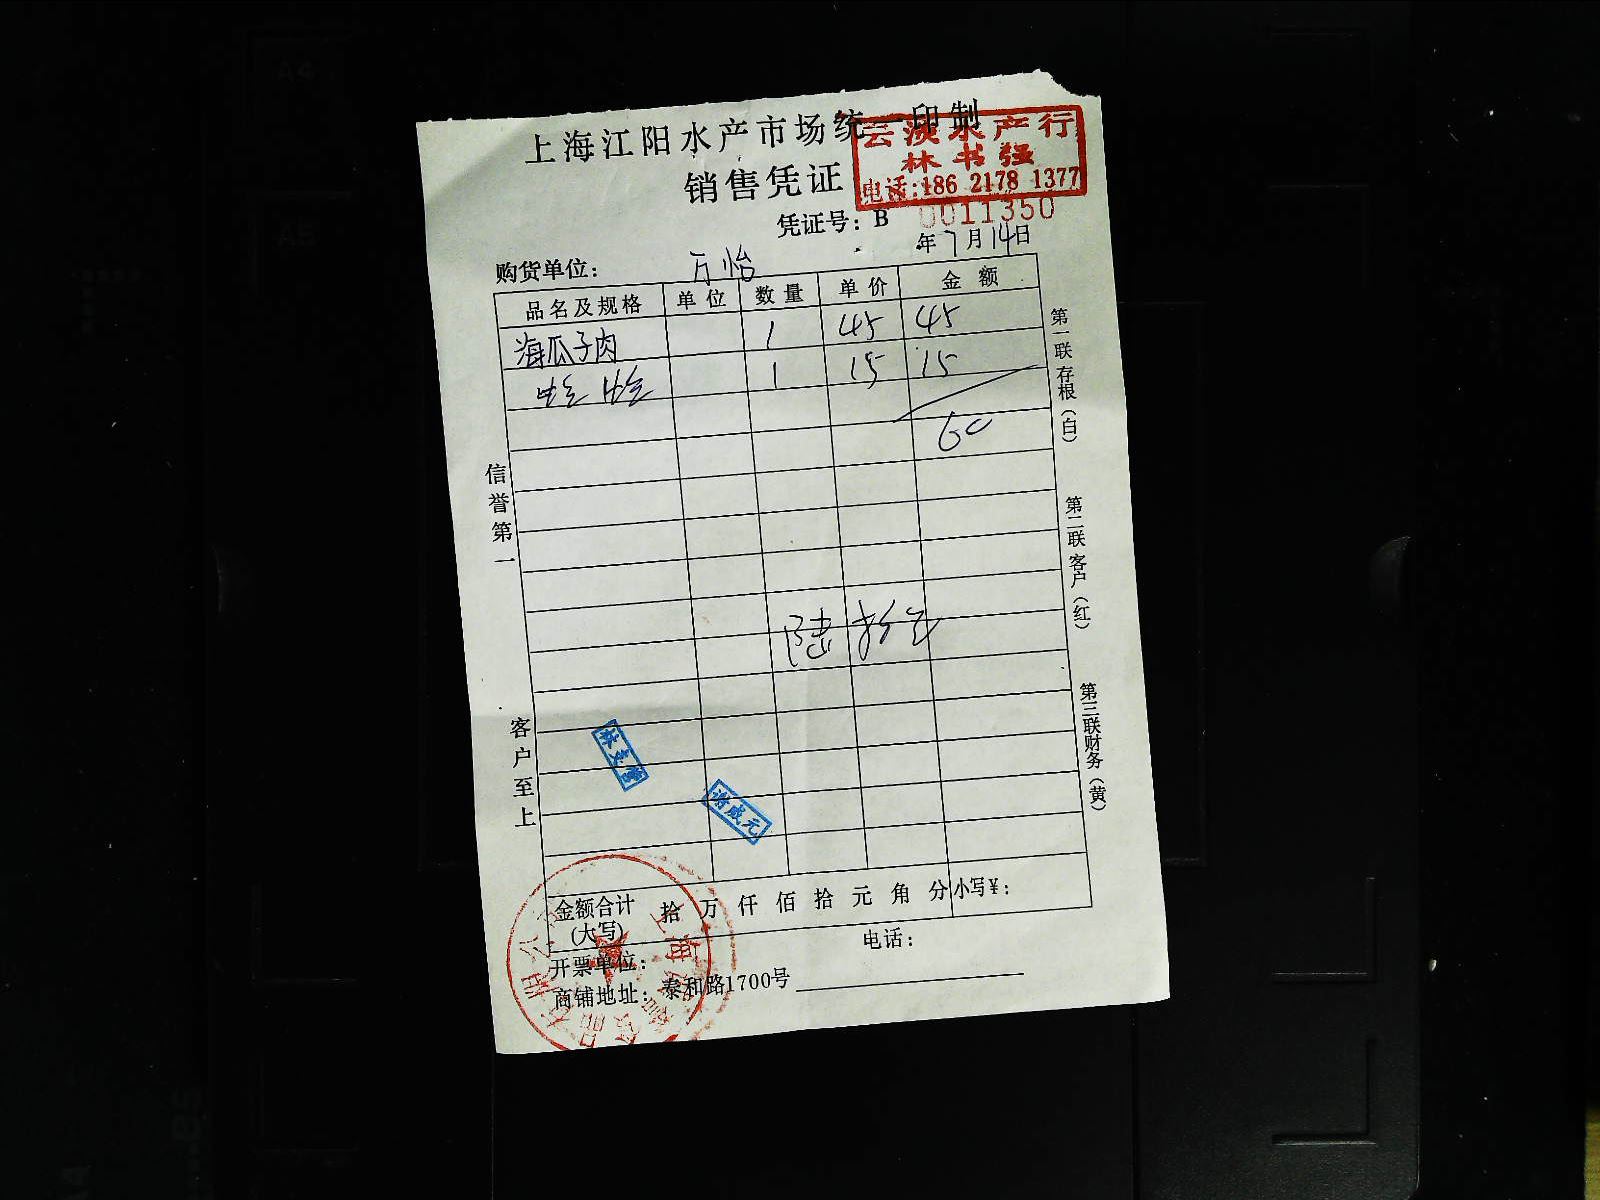 上海江阳水产市场统一印制
销售凭证
云溟水产行
林书强
电话:186 2178 1377
凭证号: B 0011350
年7月14日
购货单位: 万怡
品名及规格 单位 数量 单价 金额
海瓜子肉 1 45 45
蛏 1 15 15
60
陆拾元
信誉第一
客户至上
第一联存根(白)
第二联客户(红)
第三联财务(黄)
谢成元
金额合计(大写) 拾 万 仟 佰 拾 元 角 分 小写¥:
开票单位: 电话:
商铺地址: 泰和路1700号